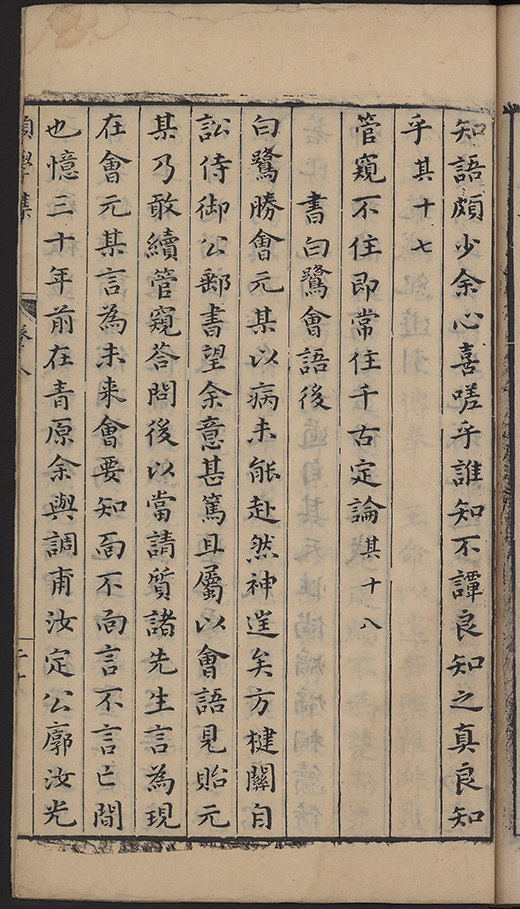 知語頗少余心喜嗟乎誰知不譚良知之真良知
乎其十七
管窺不住即常住千古定論其十八
書白鷺會語後
白鷺勝會元某以病未能赴然神遑矣方揵關自
訟侍御公郵書望余意甚篤且屬以會語見貽元
某乃敢續管窺答問後以當請質諸先生言為現
在會元某言為未来會要知面不面言不言亡間
也憶三十年前在青原余與調甫汝定公廓汝光
願學集
卷八
二十